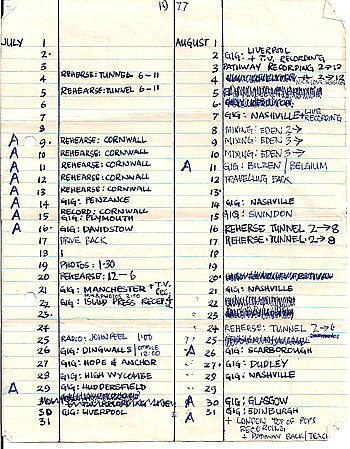 1977
JULY 1
2
3
4 REHERSE: TUNNEL 6-11
5 REHERSE: TUNNEL 6-11
6
7
8
A 9 REHEARSE: CORNWALL
A 10 REHEARSE: CORNWALL
A 11 REHEARSE: CORNWALL
A 12 REHEARSE: CORNWALL
A 13 REHEARSE: CORNWALL
A 14 GIG: PENZANCE
A 15 RECORD: CORNWALL
GIG: PLYMOUTH
A 16 GIG: DAVIDSTOW
17 DRIVE BACK
18
19 PHOTOS: 1·30
20 REHEARSE: 12-6
21 GIG: MANCHESTER + T.V. REC.
22 GIG: ISLAND PRESS RECEP
23
24
25 RADIO: JOHN PEEL 1:00
26 GIG: DINGWALLS / OFFICE 12:00
27 GIG: HOPE & ANCHOR
28 GIG: HIGH WYCOMBE
A 29 GIG: HUDDERSFIELD
30 GIG: LIVERPOOL
31
AUGUST 1
2 GIG: LIVERPOOL
+ T.V. RECORDING
3 PATHWAY RECORDING 2→12
4 2→12
5
6
7 GIG: NASHVILLE + LIVE RECORDING
8 MIXING: EDEN 2→
9 MIXING: EDEN 3→
10 MIXING: EDEN 3→
A 11 GIG: BILZEN / BELGIUM
12 TRAVELLING BACK
13
14 GIG: NASHVILLE
15 GIG: SWINDON
16 REHERSE TUNNEL 2→8
17 REHERSE: TUNNEL 2→8
18
19
20 FESTIVAL
21 GIG: NASHVILLE
22
23
24 REHERSE: TUNNEL 2→6
25
A 26 GIG: SCARBOROUGH
27 GIG: DUDLEY
28 GIG: NASHVILLE
29
A 30 GIG: GLASGOW
A 31 GIG: EDINBURGH
+ LONDON TOP OF POPS
RECORDING